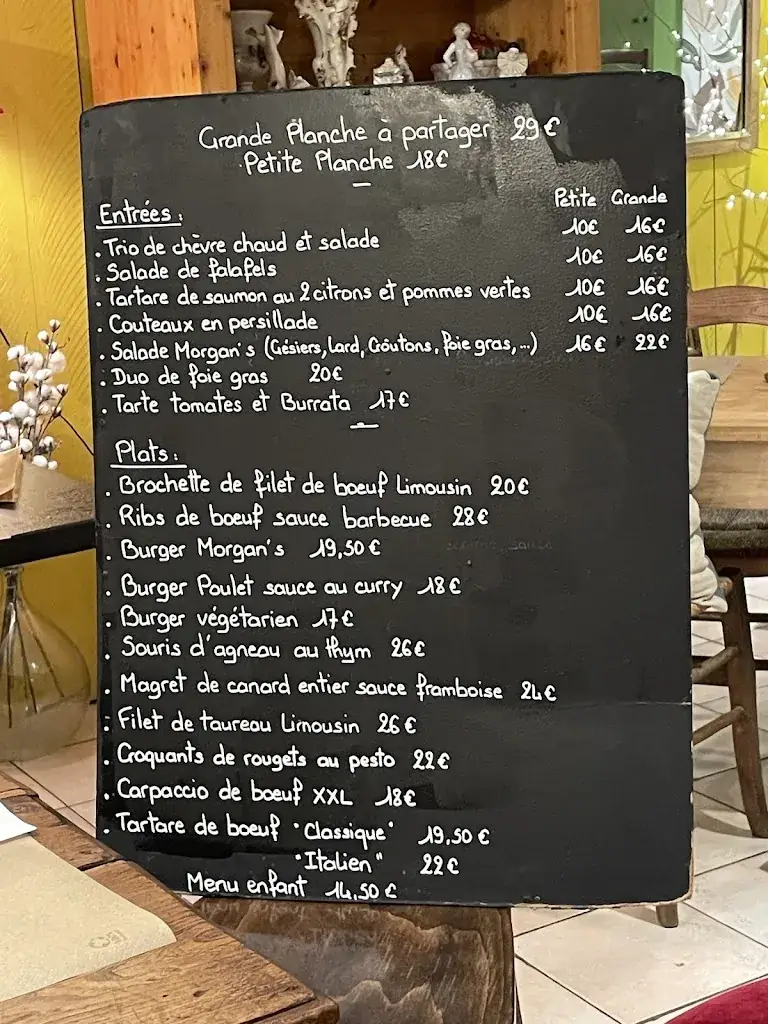 Grande Planche à partager 29€
Petite Planche 18€
Petite Grande
Entrées :
. Trio de chèvre chaud et salade 10€ 16€
. Salade de falafels 10€ 16€
. Tartare de saumon au 2 citrons et pommes vertes 10€ 16€
. Couteaux en persillade 10€ 16€
. Salade Morgan's (Gésiers, Lard, Croûtons, foie gras, ...) 16€ 22€
. Duo de foie gras 20€
. Tarte tomates et Burrata 17€
Plats :
. Brochette de filet de boeuf Limousin 20€
. Ribs de boeuf sauce barbecue 28€
. Burger Morgan's 19,50€
. Burger Poulet sauce au curry 18€
. Burger végétarien 17€
. Souris d'agneau au thym 26€
. Magret de canard entier sauce framboise 24€
. Filet de taureau Limousin 26€
. Croquants de rougets au pesto 22€
. Carpaccio de boeuf XXL 18€
. Tartare de boeuf "Classique" 19,50€
"Italien" 22€
Menu enfant 14,50€